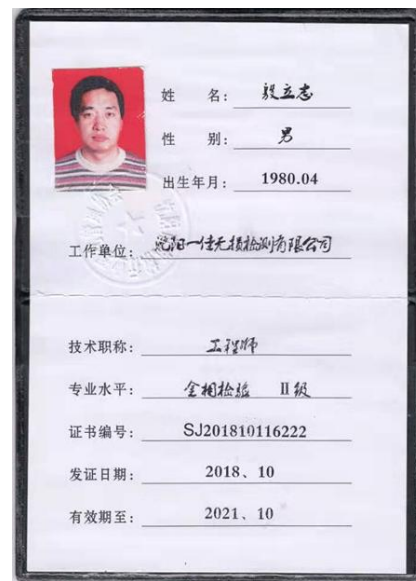 姓 名: 殷立志
性 别: 男
出生年月: 1980.04
工作单位: 沈阳一佳无损检测有限公司
技术职称: 工程师
专业水平: 金相检验 Ⅱ级
证书编号: SJ201810116222
发证日期: 2018、10
有效期至: 2021、10